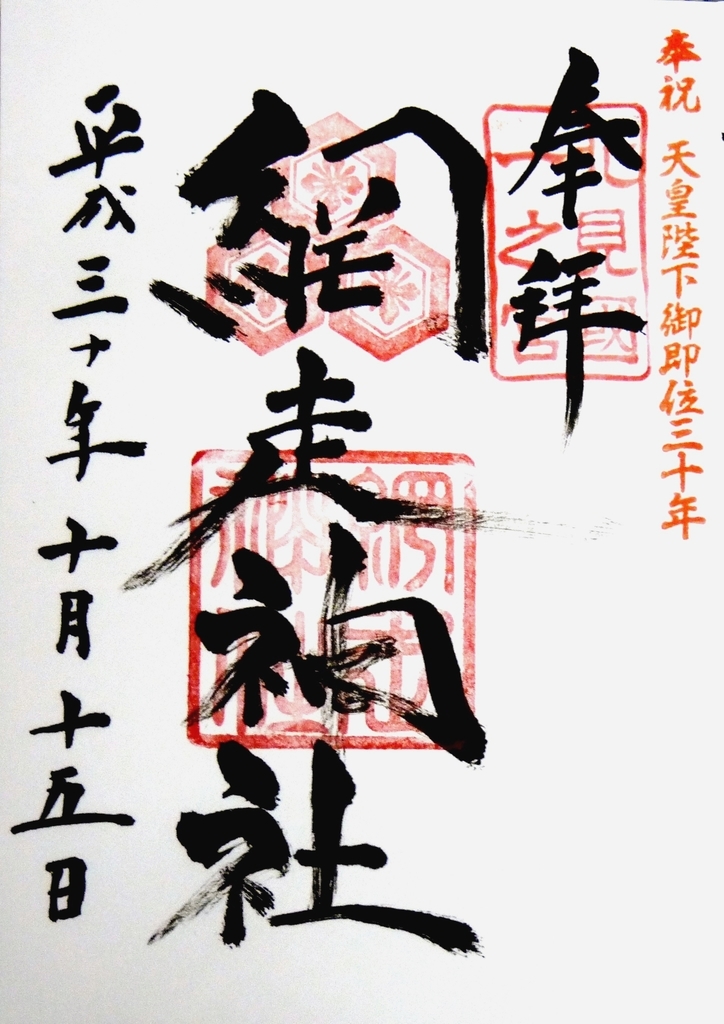 奉祝 天皇陛下御即位三十年
奉拝
北見國
一之宮
網走神社
網走
神社
平成三十年十月十五日